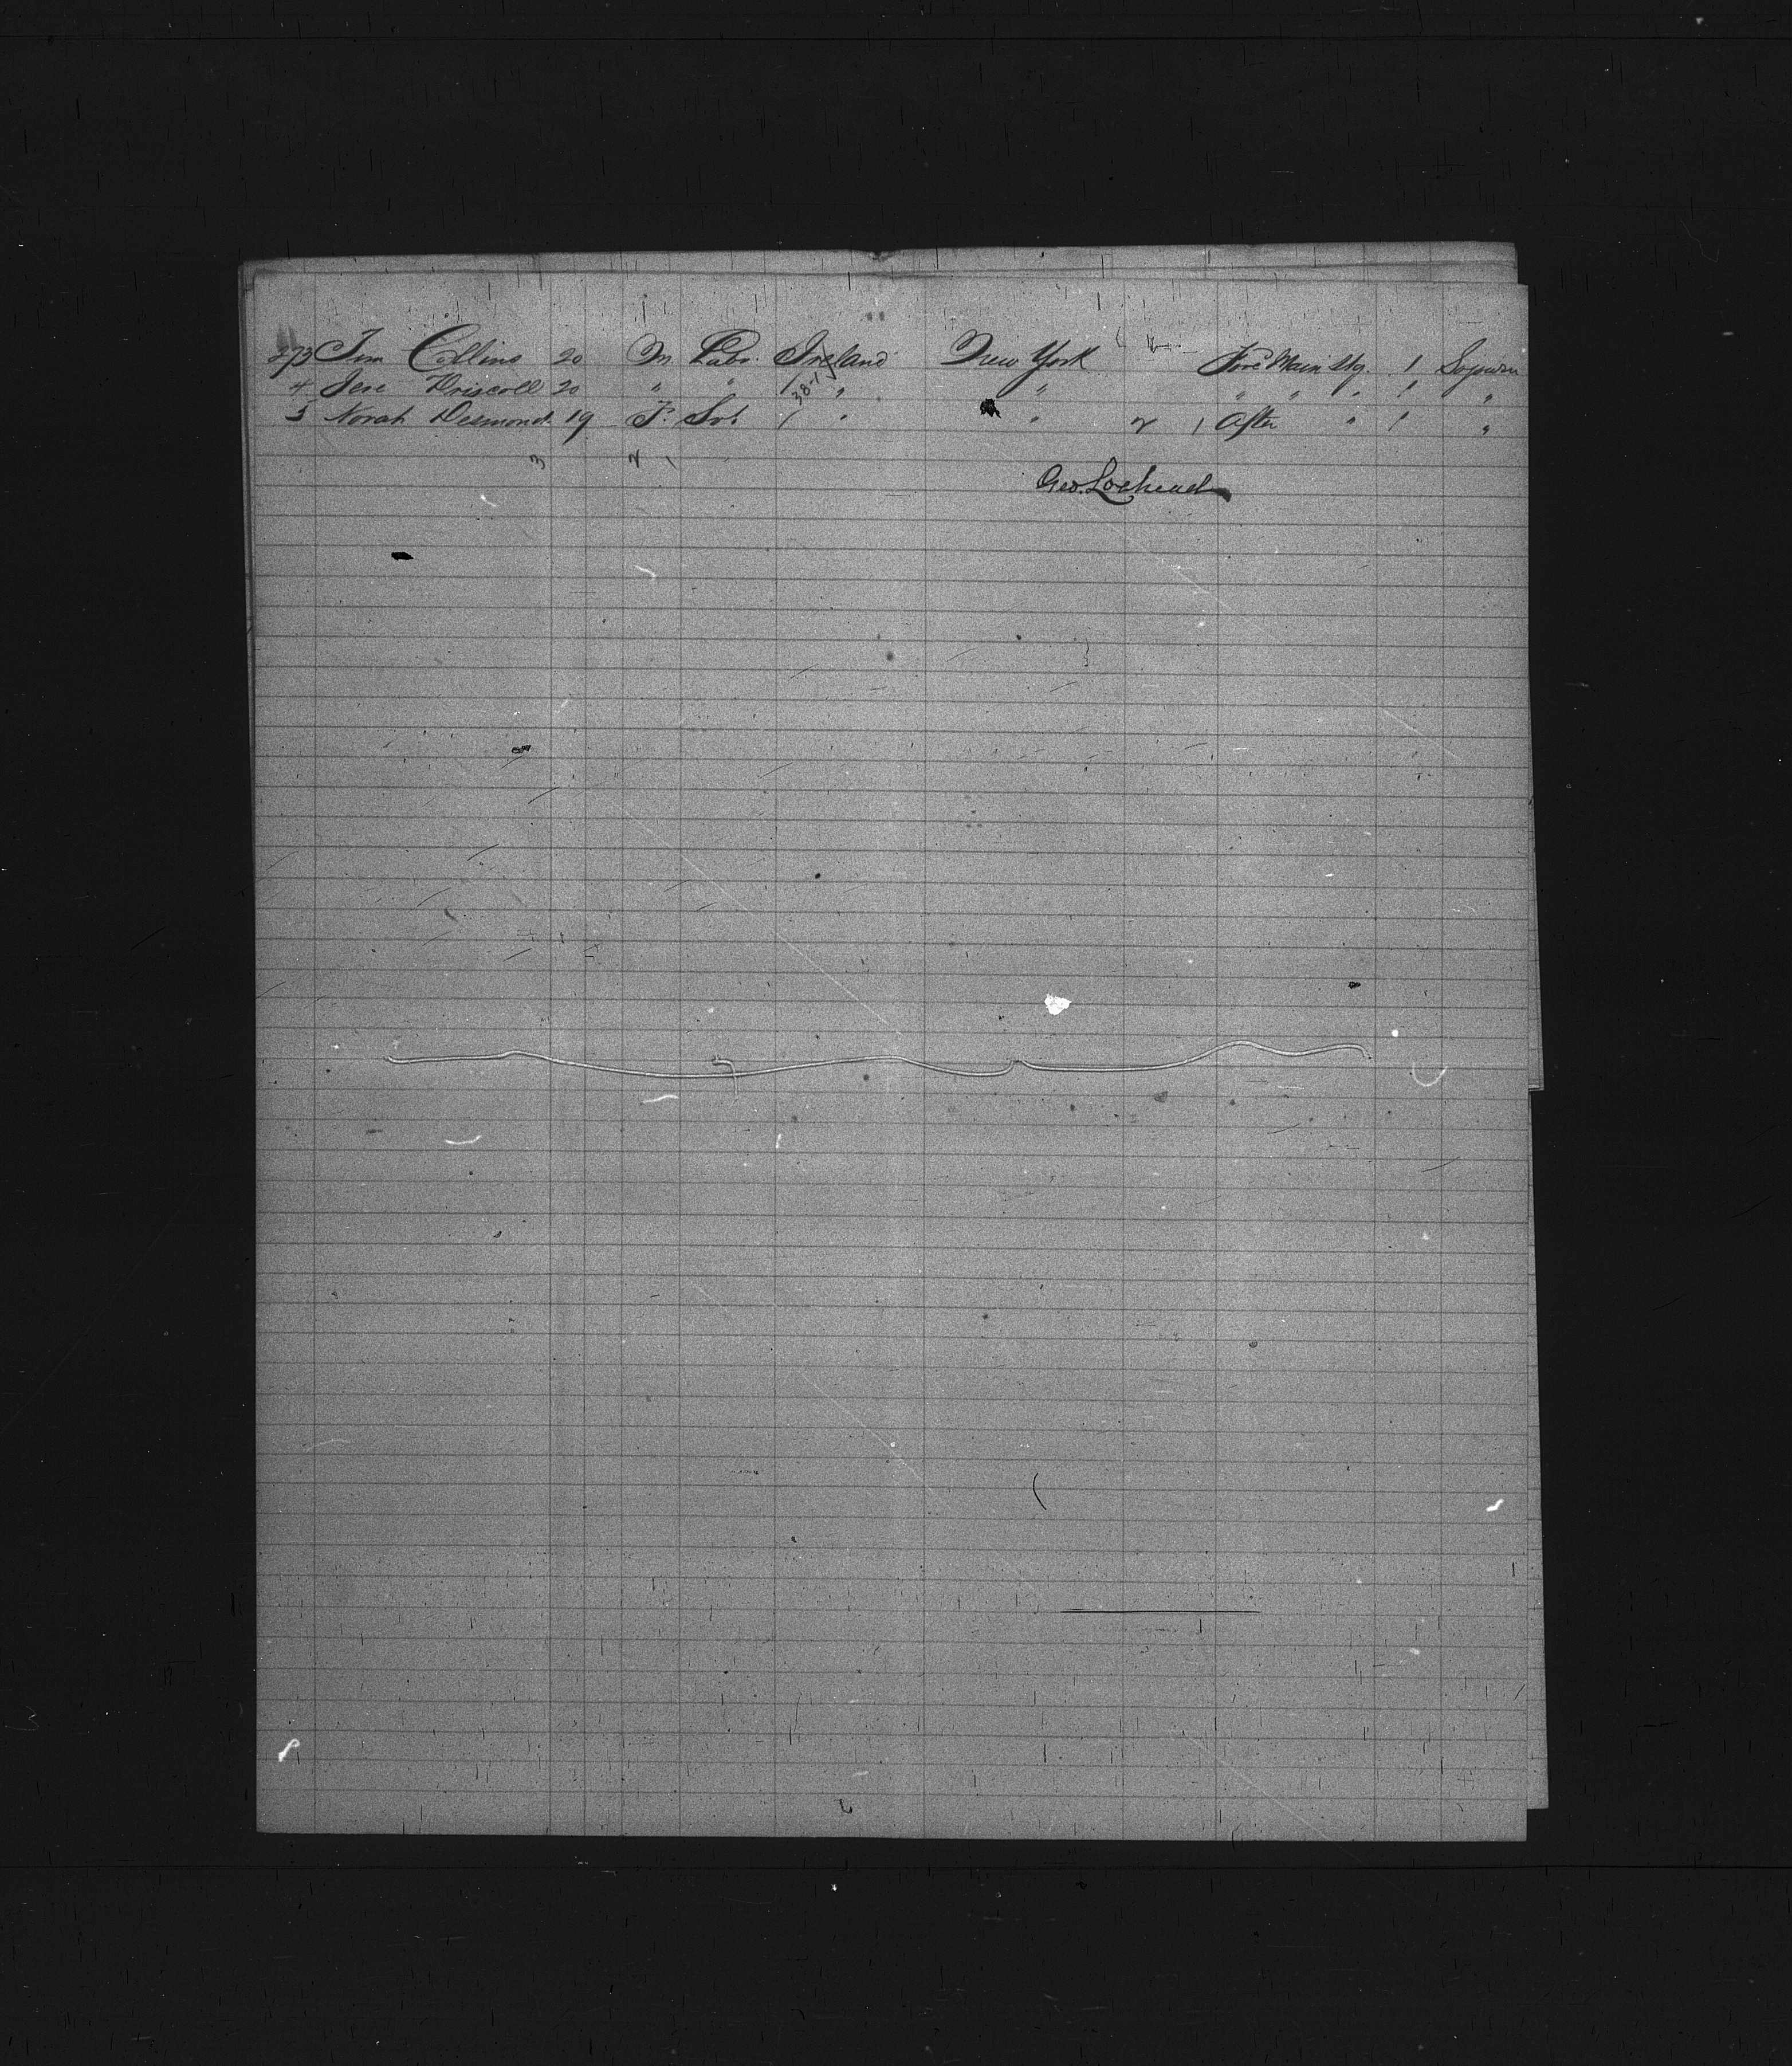 273 Tim Collins 20 M Labr. Ireland New York Fore Main Stg. 1 Sojourn
4 Jere Driscoll 20 " " 1 " " " " " 1 "
5 Norah Desmond 19 F. Svt 1 " " 2 1 After " 1 "
3 2 1
Geo. Lochead